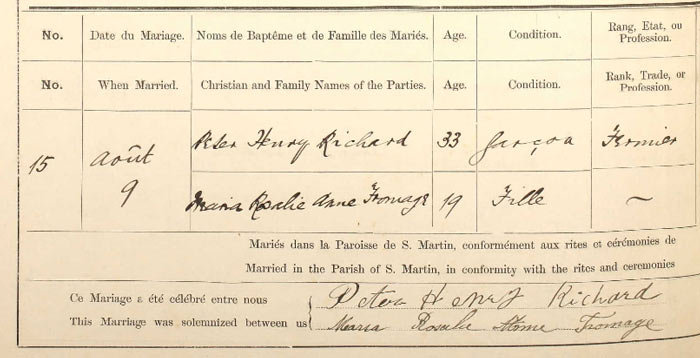 No. Date du Mariage. Noms de Baptême et de Famille des Mariés. Age. Condition. Rang, Etat, ou Profession.
No. When Married. Christian and Family Names of the Parties. Age. Condition. Rank, Trade, or Profession.
15 Août 9 Peter Henry Richard 33 garçon Fermier
Maria Rosalie Anne Fromage 19 Fille ~
Mariés dans la Paroisse de S. Martin, conformément aux rites et cérémonies de
Married in the Parish of S. Martin, in conformity with the rites and ceremonies
Ce Mariage a été célébré entre nous Peter Henry Richard
This Marriage was solemnized between us Maria Rosalie Fromage